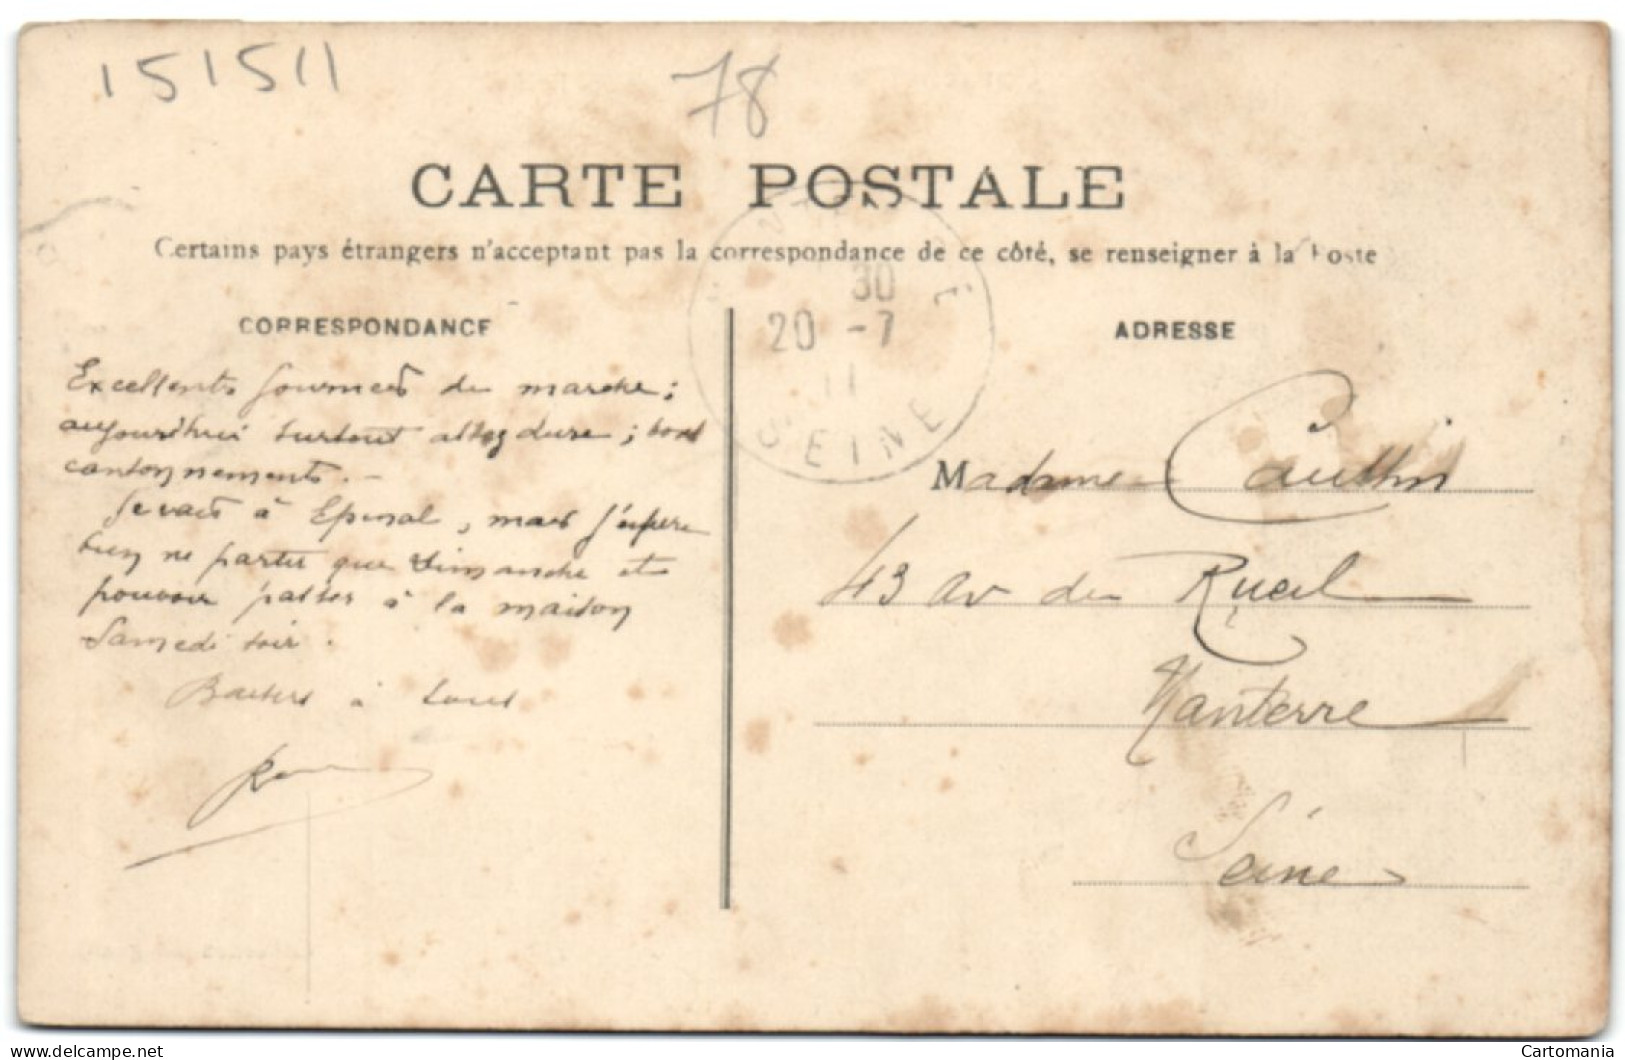 151511
78
CARTE POSTALE
Certains pays étrangers n'acceptant pas la correspondance de ce côté, se renseigner à la Poste
30
20 -7
11
SEINE
CORRESPONDANCE
ADRESSE
Excellentes journées de marche ;
aujourd'hui surtout assez dure ; bons
cantonnements. -
Je vais à Epinal, mais j'espère
bien ne partir que dimanche et
pouvoir passer à la maison
Samedi soir.
Baisers à tous
Madame Cauthin
43 av du Rueil
Nanterre
Seine
Cartomania